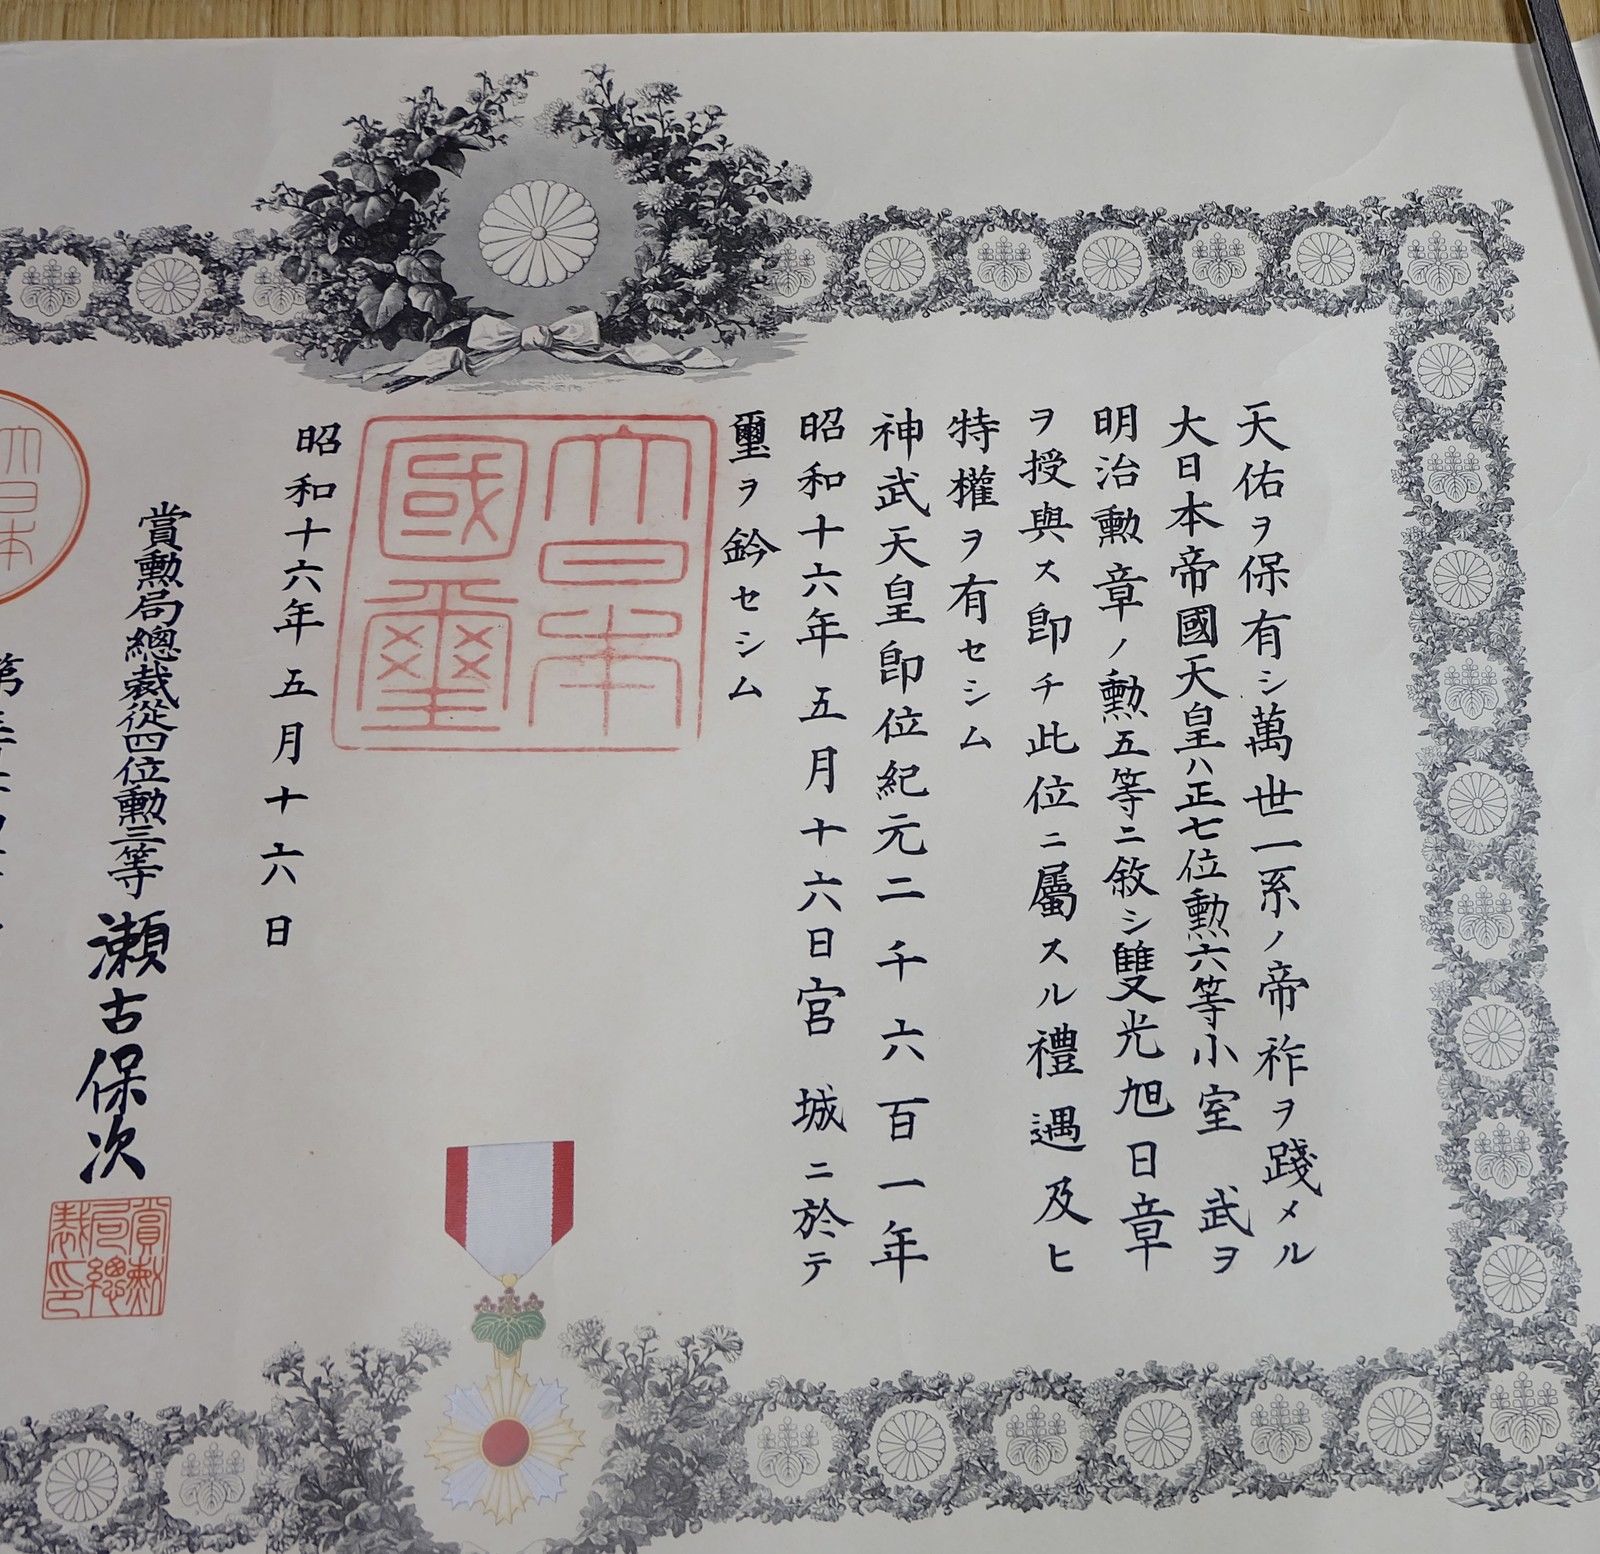 天佑ヲ保有シ萬世一系ノ帝祚ヲ踐メル
大日本帝國天皇ハ正七位勲六等小室武ヲ
明治勲章ノ勲五等ニ敘シ雙光旭日章
ヲ授與ス卽チ此位ニ屬スル禮遇及ヒ
特權ヲ有セシム
神武天皇卽位紀元二千六百一年
昭和十六年五月十六日宮城ニ於テ
璽ヲ鈐セシム
大日本
國璽
昭和十六年五月十六日
賞勲局總裁從四位勲三等瀬古保次
賞勲
局總
裁印
大日本
第